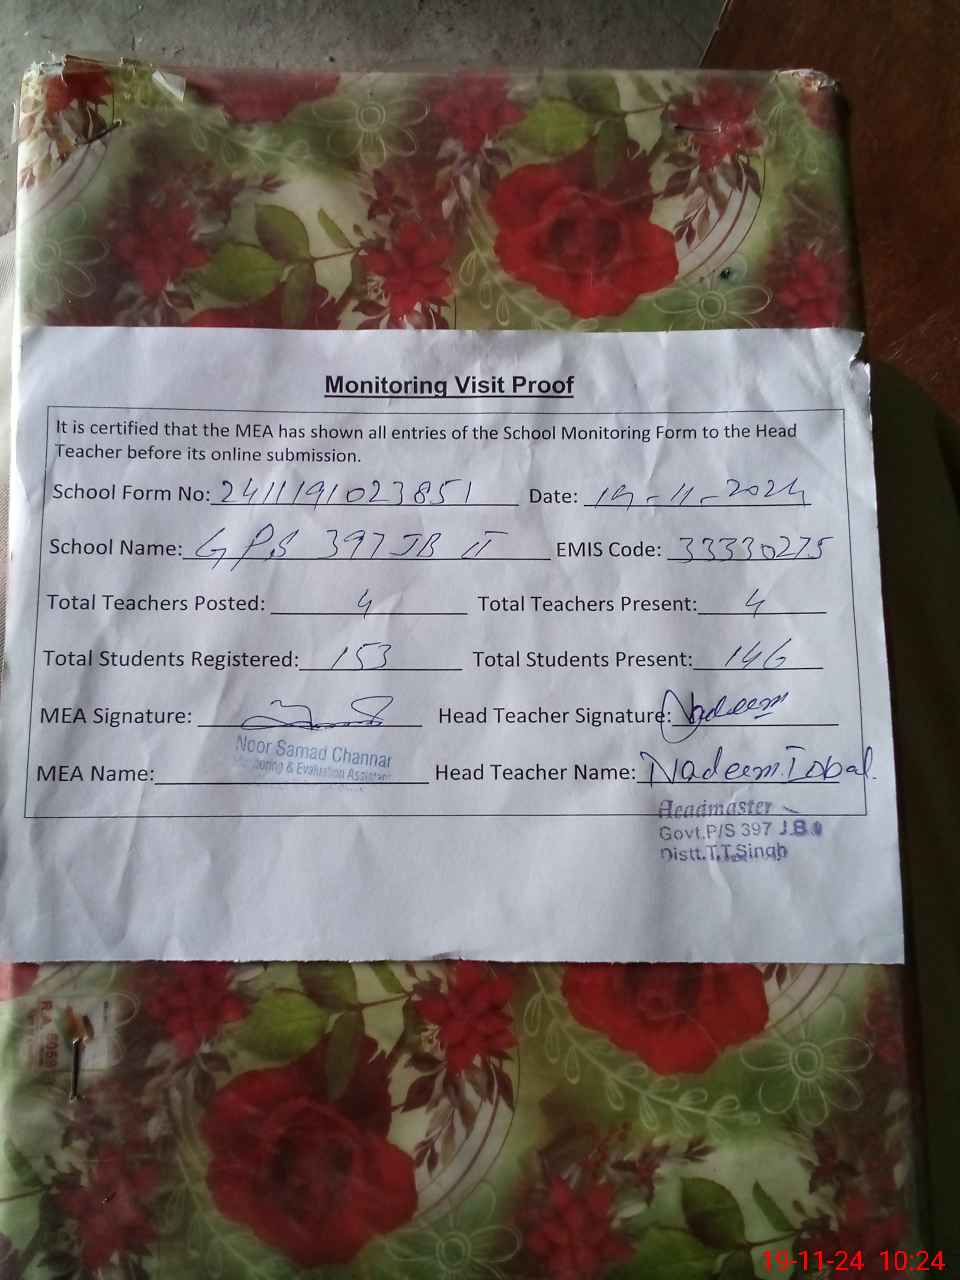 Monitoring Visit Proof
It is certified that the MEA has shown all entries of the School Monitoring Form to the Head
Teacher before its online submission.
School Form No: 2411191023851 Date: 19-11-2024
School Name: GPS 397 JB II EMIS Code: 33330275
Total Teachers Posted: 4 Total Teachers Present: 4
Total Students Registered: 153 Total Students Present: 146
MEA Signature: Head Teacher Signature: Nadeem
Noor Samad Channar
Monitoring & Evaluation Assistant
MEA Name: Head Teacher Name: Nadeem Iqbal.
Headmaster
Govt.P/S 397 J.B.
Distt.T.T.Singh
19-11-24 10:24